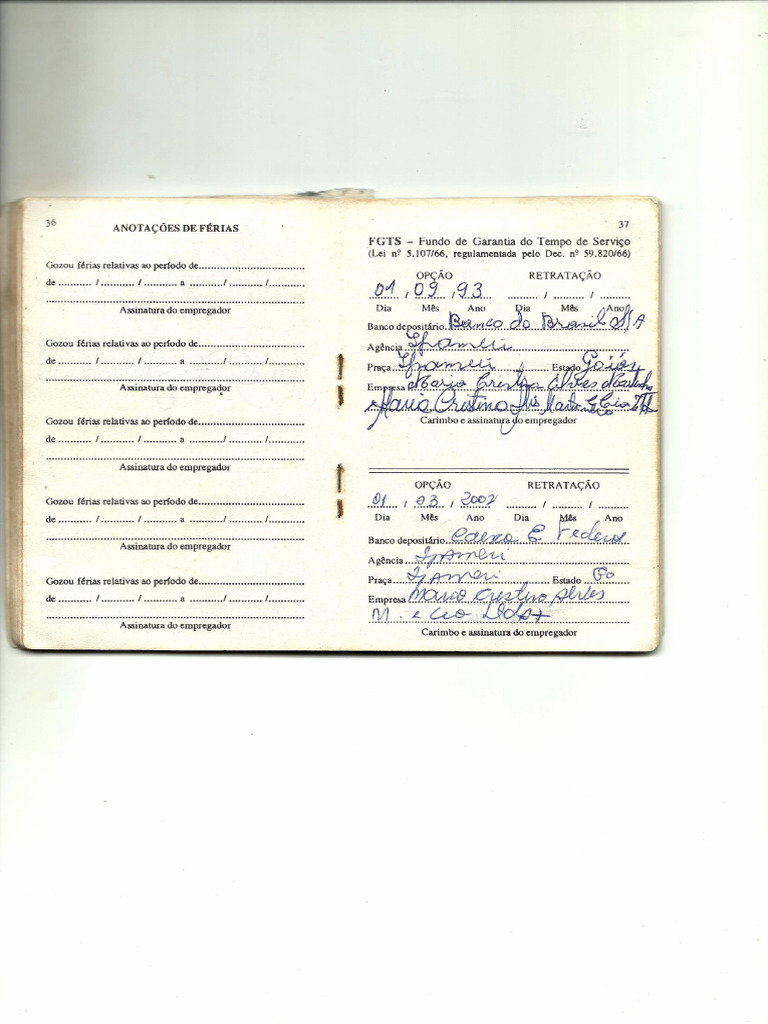 36
ANOTAÇÕES DE FÉRIAS
Gozou férias relativas ao período de
de ........... / ........... / ........... a ........... / ........... / ...........
Assinatura do empregador
Gozou férias relativas ao período de
de ........... / ........... / ........... a ........... / ........... / ...........
Assinatura do empregador
Gozou férias relativas ao período de
de ........... / ........... / ........... a ........... / ........... / ...........
Assinatura do empregador
Gozou férias relativas ao período de
de ........... / ........... / ........... a ........... / ........... / ...........
Assinatura do empregador
Gozou férias relativas ao período de
de ........... / ........... / ........... a ........... / ........... / ...........
Assinatura do empregador
37
FGTS – Fundo de Garantia do Tempo de Serviço
(Lei nº 5.107/66, regulamentada pelo Dec. nº 59.820/66)
OPÇÃO RETRATAÇÃO
01 , 09 , 93 ........ / ........ / ........
Dia Mês Ano Dia Mês Ano
Banco depositário Banco do Brasil S/A
Agência Ipameri
Praça Ipameri Estado Goiás
Empresa Maria Cristina Alves
Maria Cristina
Carimbo e assinatura do empregador
OPÇÃO RETRATAÇÃO
01 , 03 , 2002 ........ / ........ / ........
Dia Mês Ano Dia Mês Ano
Banco depositário Caixa E. Federal
Agência Ipameri
Praça Ipameri Estado Go
Empresa Maria Cristina Alves
M. e Cia Ltda
Carimbo e assinatura do empregador